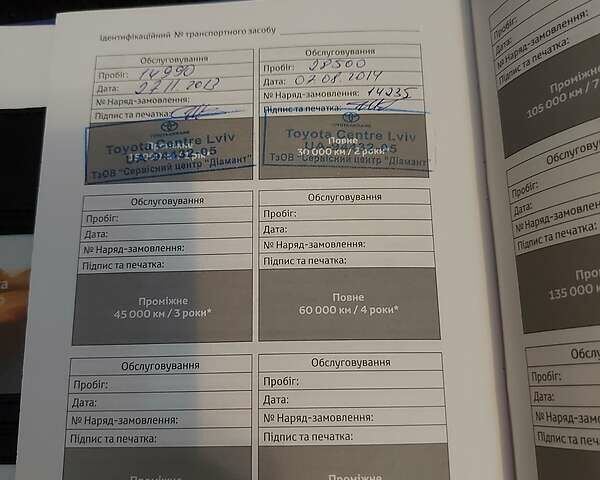 Ідентифікаційний № транспортного засобу
Обслуговування
Пробіг: 14990
Дата: 27.11.2013
№ Наряд-замовлення:
Підпис та печатка:
Toyota Centre Lviv
UA-04432-05
ТзОВ "Сервісний центр "Діамант"
Обслуговування
Пробіг: 28500
Дата: 07.08.2014
№ Наряд-замовлення: 14235
Підпис та печатка:
Повне
30 000 км / 2 роки*
Toyota Centre Lviv
UA-04432-05
ТзОВ "Сервісний центр "Діамант"
Обслуговування
Пробіг:
Дата:
№ Наряд-замовлення:
Підпис та печатка:
Проміжне
45 000 км / 3 роки*
Обслуговування
Пробіг:
Дата:
№ Наряд-замовлення:
Підпис та печатка:
Повне
60 000 км / 4 роки*
Обслуговування
Пробіг:
Дата:
№ Наряд-замовлення:
Підпис та печатка:
Проміжне
Обслуговування
Пробіг:
Дата:
№ Наряд-замовлення:
Підпис та печатка:
Повне
Пробіг:
Дата:
№ Наряд-замовлення
Підпис та печатка
Проміжне
105 000 км / 7
Обслу
Пробіг:
Дата:
№ Наряд-замовлен
Підпис та печатка:
Проміжн
135 000 км /
Обсл
Пробіг:
Дата:
№ Наряд-замовл
Підпис та печатк